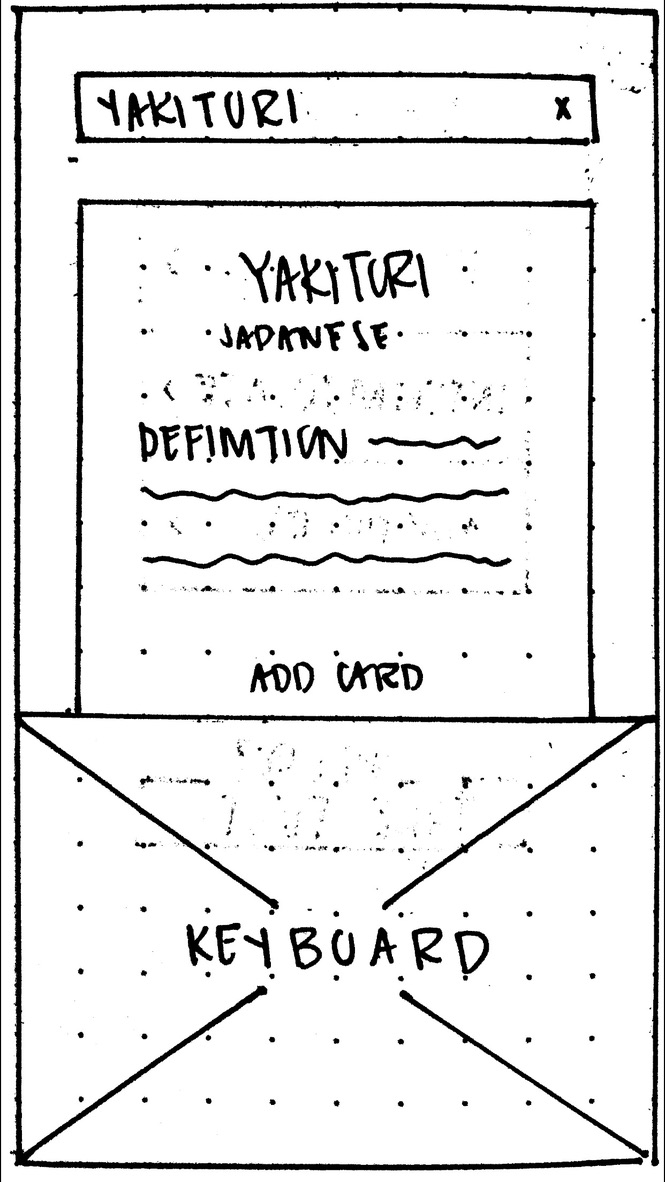 YAKITURI X
YAKITURI
JAPANESE
DEFINITION
ADD CARD
KEYBOARD